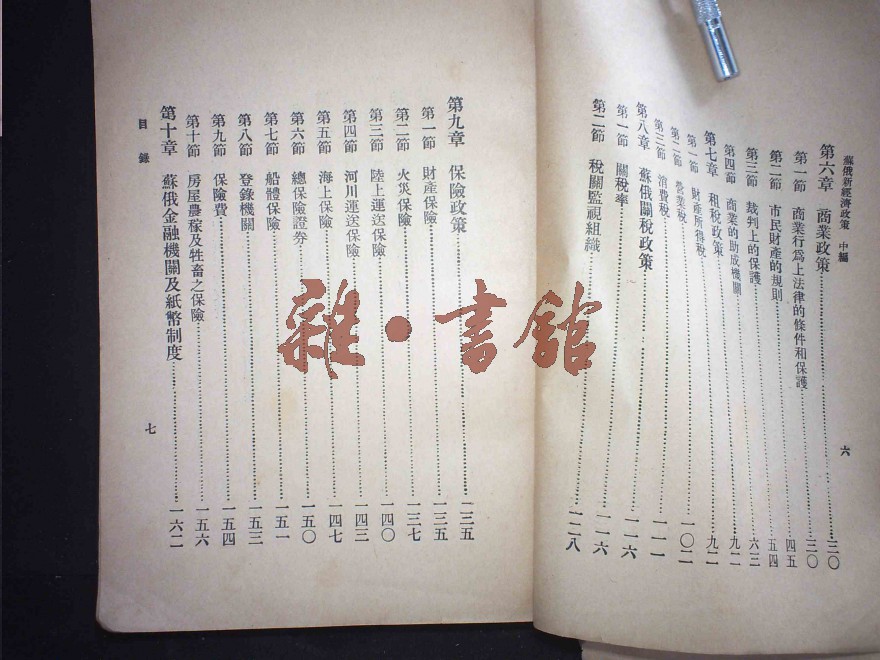 蘇俄新經濟政策 中編
第六章 商業政策……三〇
第一節 商業行爲上法律的條件和保護……三〇
第二節 市民財產的規則……四五
第三節 裁判上的保護……五四
第四節 商業的助成機關……六三
第七章 租稅政策……九二
第一節 財產所得稅……九二
第二節 營業稅……一〇二
第三節 消費稅……一一一
第八章 蘇俄關稅政策……一一六
第一節 關稅率……一一六
第二節 稅關監視組織……一二八
六
第九章 保險政策……一三五
第一節 財產保險……一三五
第二節 火災保險……一三七
第三節 陸上運送保險……一四〇
第四節 河川運送保險……一四三
第五節 海上保險……一四七
第六節 總保險證券……一五〇
第七節 船體保險……一五一
第八節 登錄機關……一五三
第九節 保險費……一五四
第十節 房屋農稼及牲畜之保險……一五六
第十章 蘇俄金融機關及紙幣制度……一六二
目錄
七
雜·書館